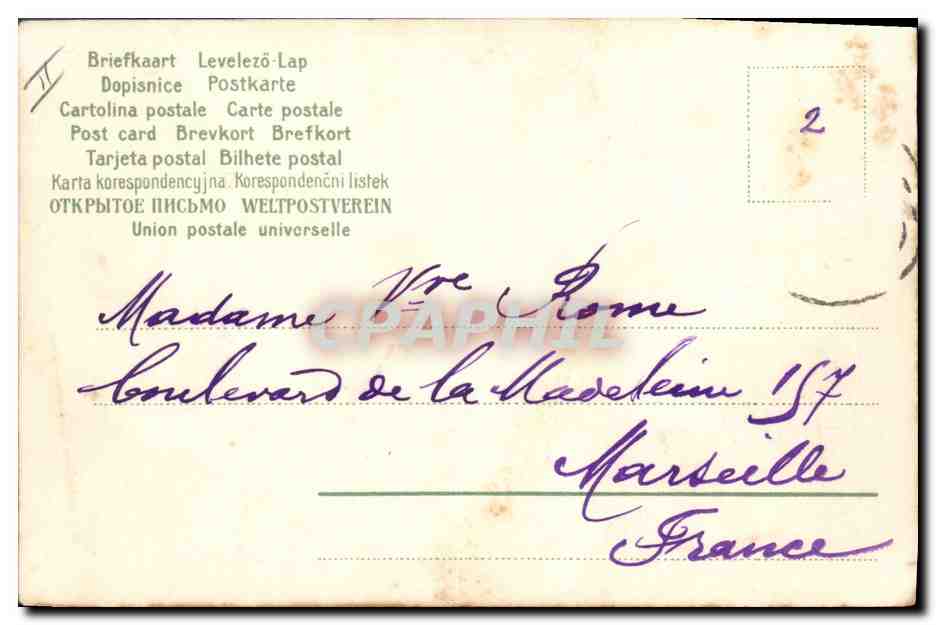 II
Briefkaart Levelező-Lap
Dopisnice Postkarte
Cartolina postale Carte postale
Post card Brevkort Brefkort
Tarjeta postal Bilhete postal
Karta korespondencyjna. Korespondenční listek
ОТКРЫТОЕ ПИСЬМО WELTPOSTVEREIN
Union postale universelle
2
Madame Vve Rome
CPAPHIL
boulevard de la Madeleine 157
Marseille
France